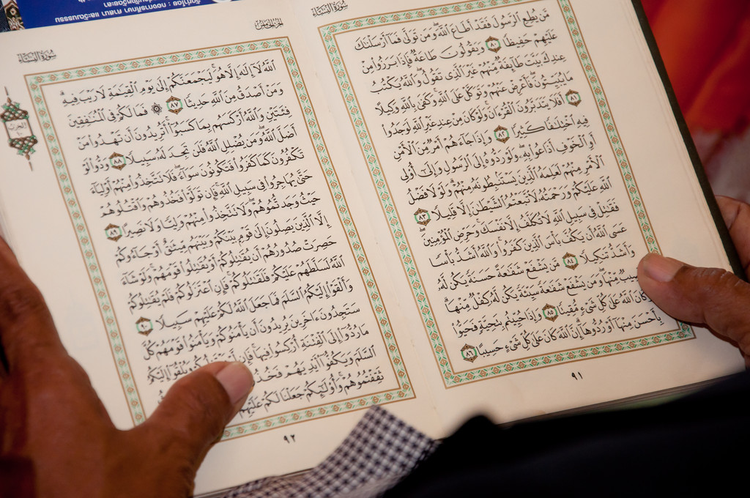 سُورَةُ النِّسَاءِ
مَّن يُطِعِ ٱلرَّسُولَ فَقَدْ أَطَاعَ ٱللَّهَ وَمَن تَوَلَّىٰ فَمَآ أَرْسَلْنَٰكَ
عَلَيْهِمْ حَفِيظًا ٨٠ وَيَقُولُونَ طَاعَةٌ فَإِذَا بَرَزُوا۟ مِنْ
عِندِكَ بَيَّتَ طَآئِفَةٌ مِّنْهُمْ غَيْرَ ٱلَّذِى تَقُولُ وَٱللَّهُ يَكْتُبُ
مَا يُبَيِّتُونَ فَأَعْرِضْ عَنْهُمْ وَتَوَكَّلْ عَلَى ٱللَّهِ وَكَفَىٰ بِٱللَّهِ وَكِيلًا
٨١ أَفَلَا يَتَدَبَّرُونَ ٱلْقُرْءَانَ وَلَوْ كَانَ مِنْ عِندِ غَيْرِ ٱللَّهِ لَوَجَدُوا۟
فِيهِ ٱخْتِلَٰفًا كَثِيرًا ٨٢ وَإِذَا جَآءَهُمْ أَمْرٌ مِّنَ ٱلْأَمْنِ
أَوِ ٱلْخَوْفِ أَذَاعُوا۟ بِهِۦ وَلَوْ رَدُّوهُ إِلَى ٱلرَّسُولِ وَإِلَىٰٓ أُو۟لِى
ٱلْأَمْرِ مِنْهُمْ لَعَلِمَهُ ٱلَّذِينَ يَسْتَنۢبِطُونَهُۥ مِنْهُمْ وَلَوْلَا فَضْلُ
ٱللَّهِ عَلَيْكُمْ وَرَحْمَتُهُۥ لَٱتَّبَعْتُمُ ٱلشَّيْطَٰنَ إِلَّا قَلِيلًا ٨٣
فَقَٰتِلْ فِى سَبِيلِ ٱللَّهِ لَا تُكَلَّفُ إِلَّا نَفْسَكَ وَحَرِّضِ ٱلْمُؤْمِنِينَ
عَسَى ٱللَّهُ أَن يَكُفَّ بَأْسَ ٱلَّذِينَ كَفَرُوا۟ وَٱللَّهُ أَشَدُّ بَأْسًا
وَأَشَدُّ تَنكِيلًا ٨٤ مَّن يَشْفَعْ شَفَٰعَةً حَسَنَةً يَكُن لَّهُۥ
نَصِيبٌ مِّنْهَا وَمَن يَشْفَعْ شَفَٰعَةً سَيِّئَةً يَكُن لَّهُۥ كِفْلٌ مِّنْهَا
وَكَانَ ٱللَّهُ عَلَىٰ كُلِّ شَىْءٍ مُّقِيتًا ٨٥ وَإِذَا حُيِّيتُم بِتَحِيَّةٍ فَحَيُّوا۟
بِأَحْسَنَ مِنْهَآ أَوْ رُدُّوهَآ إِنَّ ٱللَّهَ كَانَ عَلَىٰ كُلِّ شَىْءٍ حَسِيبًا ٨٦
٩١
الجُزْءُ الخَامِسُ
سُورَةُ النِّسَاءِ
ٱللَّهُ لَآ إِلَٰهَ إِلَّا هُوَ لَيَجْمَعَنَّكُمْ إِلَىٰ يَوْمِ ٱلْقِيَٰمَةِ لَا رَيْبَ فِيهِ
وَمَنْ أَصْدَقُ مِنَ ٱللَّهِ حَدِيثًا ٨٧ ۞ فَمَا لَكُمْ فِى ٱلْمُنَٰفِقِينَ
فِئَتَيْنِ وَٱللَّهُ أَرْكَسَهُم بِمَا كَسَبُوٓا۟ أَتُرِيدُونَ أَن تَهْدُوا۟ مَنْ
أَضَلَّ ٱللَّهُ وَمَن يُضْلِلِ ٱللَّهُ فَلَن تَجِدَ لَهُۥ سَبِيلًا ٨٨ وَدُّوا۟ لَوْ
تَكْفُرُونَ كَمَا كَفَرُوا۟ فَتَكُونُونَ سَوَآءً فَلَا تَتَّخِذُوا۟ مِنْهُمْ أَوْلِيَآءَ
حَتَّىٰ يُهَاجِرُوا۟ فِى سَبِيلِ ٱللَّهِ فَإِن تَوَلَّوْا۟ فَخُذُوهُمْ وَٱقْتُلُوهُمْ
حَيْثُ وَجَدتُّمُوهُمْ وَلَا تَتَّخِذُوا۟ مِنْهُمْ وَلِيًّا وَلَا نَصِيرًا ٨٩
إِلَّا ٱلَّذِينَ يَصِلُونَ إِلَىٰ قَوْمٍۭ بَيْنَكُمْ وَبَيْنَهُم مِّيثَٰقٌ أَوْ جَآءُوكُمْ
حَصِرَتْ صُدُورُهُمْ أَن يُقَٰتِلُوكُمْ أَوْ يُقَٰتِلُوا۟ قَوْمَهُمْ وَلَوْ شَآءَ
ٱللَّهُ لَسَلَّطَهُمْ عَلَيْكُمْ فَلَقَٰتَلُوكُمْ فَإِنِ ٱعْتَزَلُوكُمْ فَلَمْ يُقَٰتِلُوكُمْ
وَأَلْقَوْا۟ إِلَيْكُمُ ٱلسَّلَمَ فَمَا جَعَلَ ٱللَّهُ لَكُمْ عَلَيْهِمْ سَبِيلًا ٩٠
سَتَجِدُونَ ءَاخَرِينَ يُرِيدُونَ أَن يَأْمَنُوكُمْ وَيَأْمَنُوا۟ قَوْمَهُمْ كُلَّ
مَا رُدُّوٓا۟ إِلَى ٱلْفِتْنَةِ أُرْكِسُوا۟ فِيهَا فَإِن وَيُلْقُوٓا۟ إِلَيْكُمُ
ٱلسَّلَمَ وَيَكُفُّوٓا۟ أَيْدِيَهُمْ
ثَقِفْتُمُوهُمْ وَأُو۟لَٰٓئِكُمْ جَعَلْنَا لَكُمْ عَلَيْهِمْ
٩٢